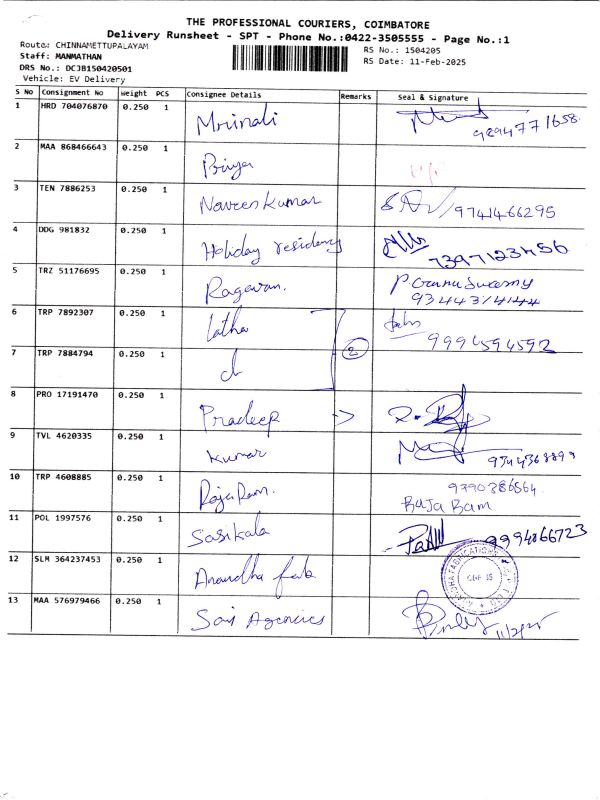 THE PROFESSIONAL COURIERS, COIMBATORE
Delivery Runsheet - SPT - Phone No.:0422-3505555 - Page No.:1
Route: CHINNAMETTUPALAYAM
RS No.: 1504205
Staff: MANMATHAN
RS Date: 11-Feb-2025
DRS No.: DCJB150420501
Vehicle: EV Delivery
S No Consignment No Weight PCS Consignee Details Remarks Seal & Signature
1 HRD 704076870 0.250 1 Mrinali 9294771658
2 MAA 868466643 0.250 1 Priya
3 TEN 7886253 0.250 1 Naveen Kumar 9741466295
4 DDG 981832 0.250 1 Holiday residency 7397123456
5 TRZ 51176695 0.250 1 Ragavan.
9344314144
6 TRP 7892307 0.250 1 latha 9994594592
2
7 TRP 7884794 0.250 1
8 PRO 17191470 0.250 1 Pradeep
9 TVL 4620335 0.250 1 Kumar
10 TRP 4608885 0.250 1 RajaRam. 9790386564
RaJa Ram
11 POL 1997576 0.250 1 Sasikala 9994866723
12 SLM 364237453 0.250 1 Anandha fab
13 MAA 576979466 0.250 1 Sai Agencies 11/2/25